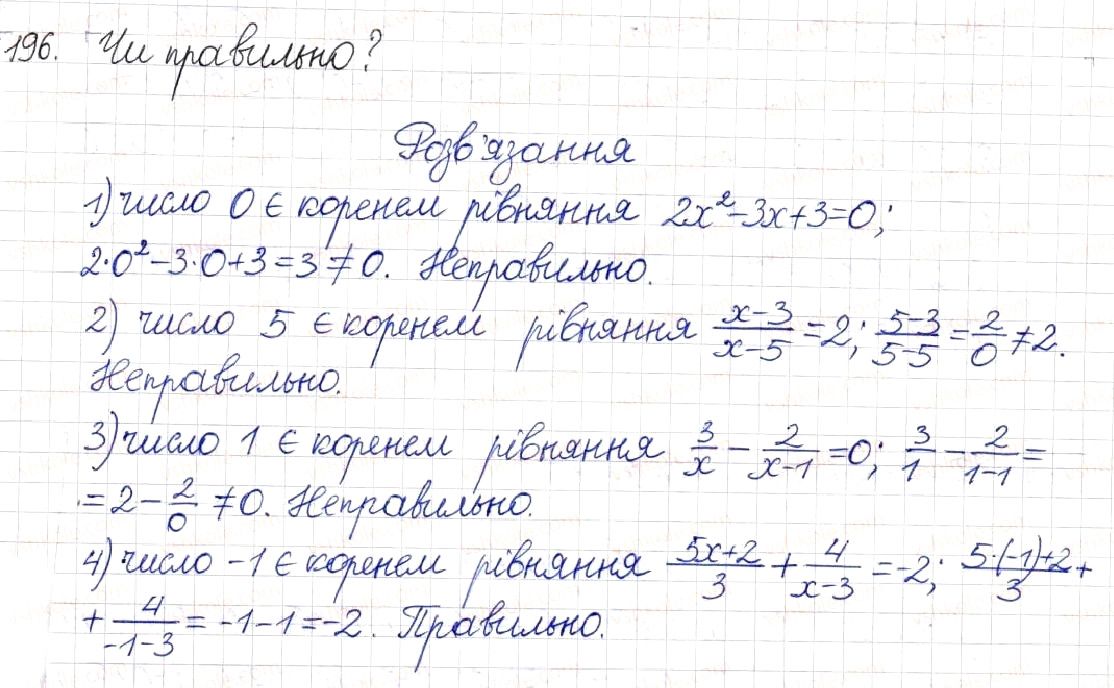 196. Чи правильно?
Розв'язання
1) число 0 є коренем рівняння 2x²-3x+3=0;
2·0²-3·0+3=3≠0. Неправильно.
2) число 5 є коренем рівняння \frac{x-3}{x-5}=2; \frac{5-3}{5-5}=\frac{2}{0}≠2.
Неправильно.
3) число 1 є коренем рівняння \frac{3}{x}-\frac{2}{x-1}=0; \frac{3}{1}-\frac{2}{1-1}=
=2-\frac{2}{0}≠0. Неправильно.
4) число -1 є коренем рівняння \frac{5x+2}{3}+\frac{4}{x-3}=-2; \frac{5·(-1)+2}{3}+
+\frac{4}{-1-3}=-1-1=-2. Правильно.